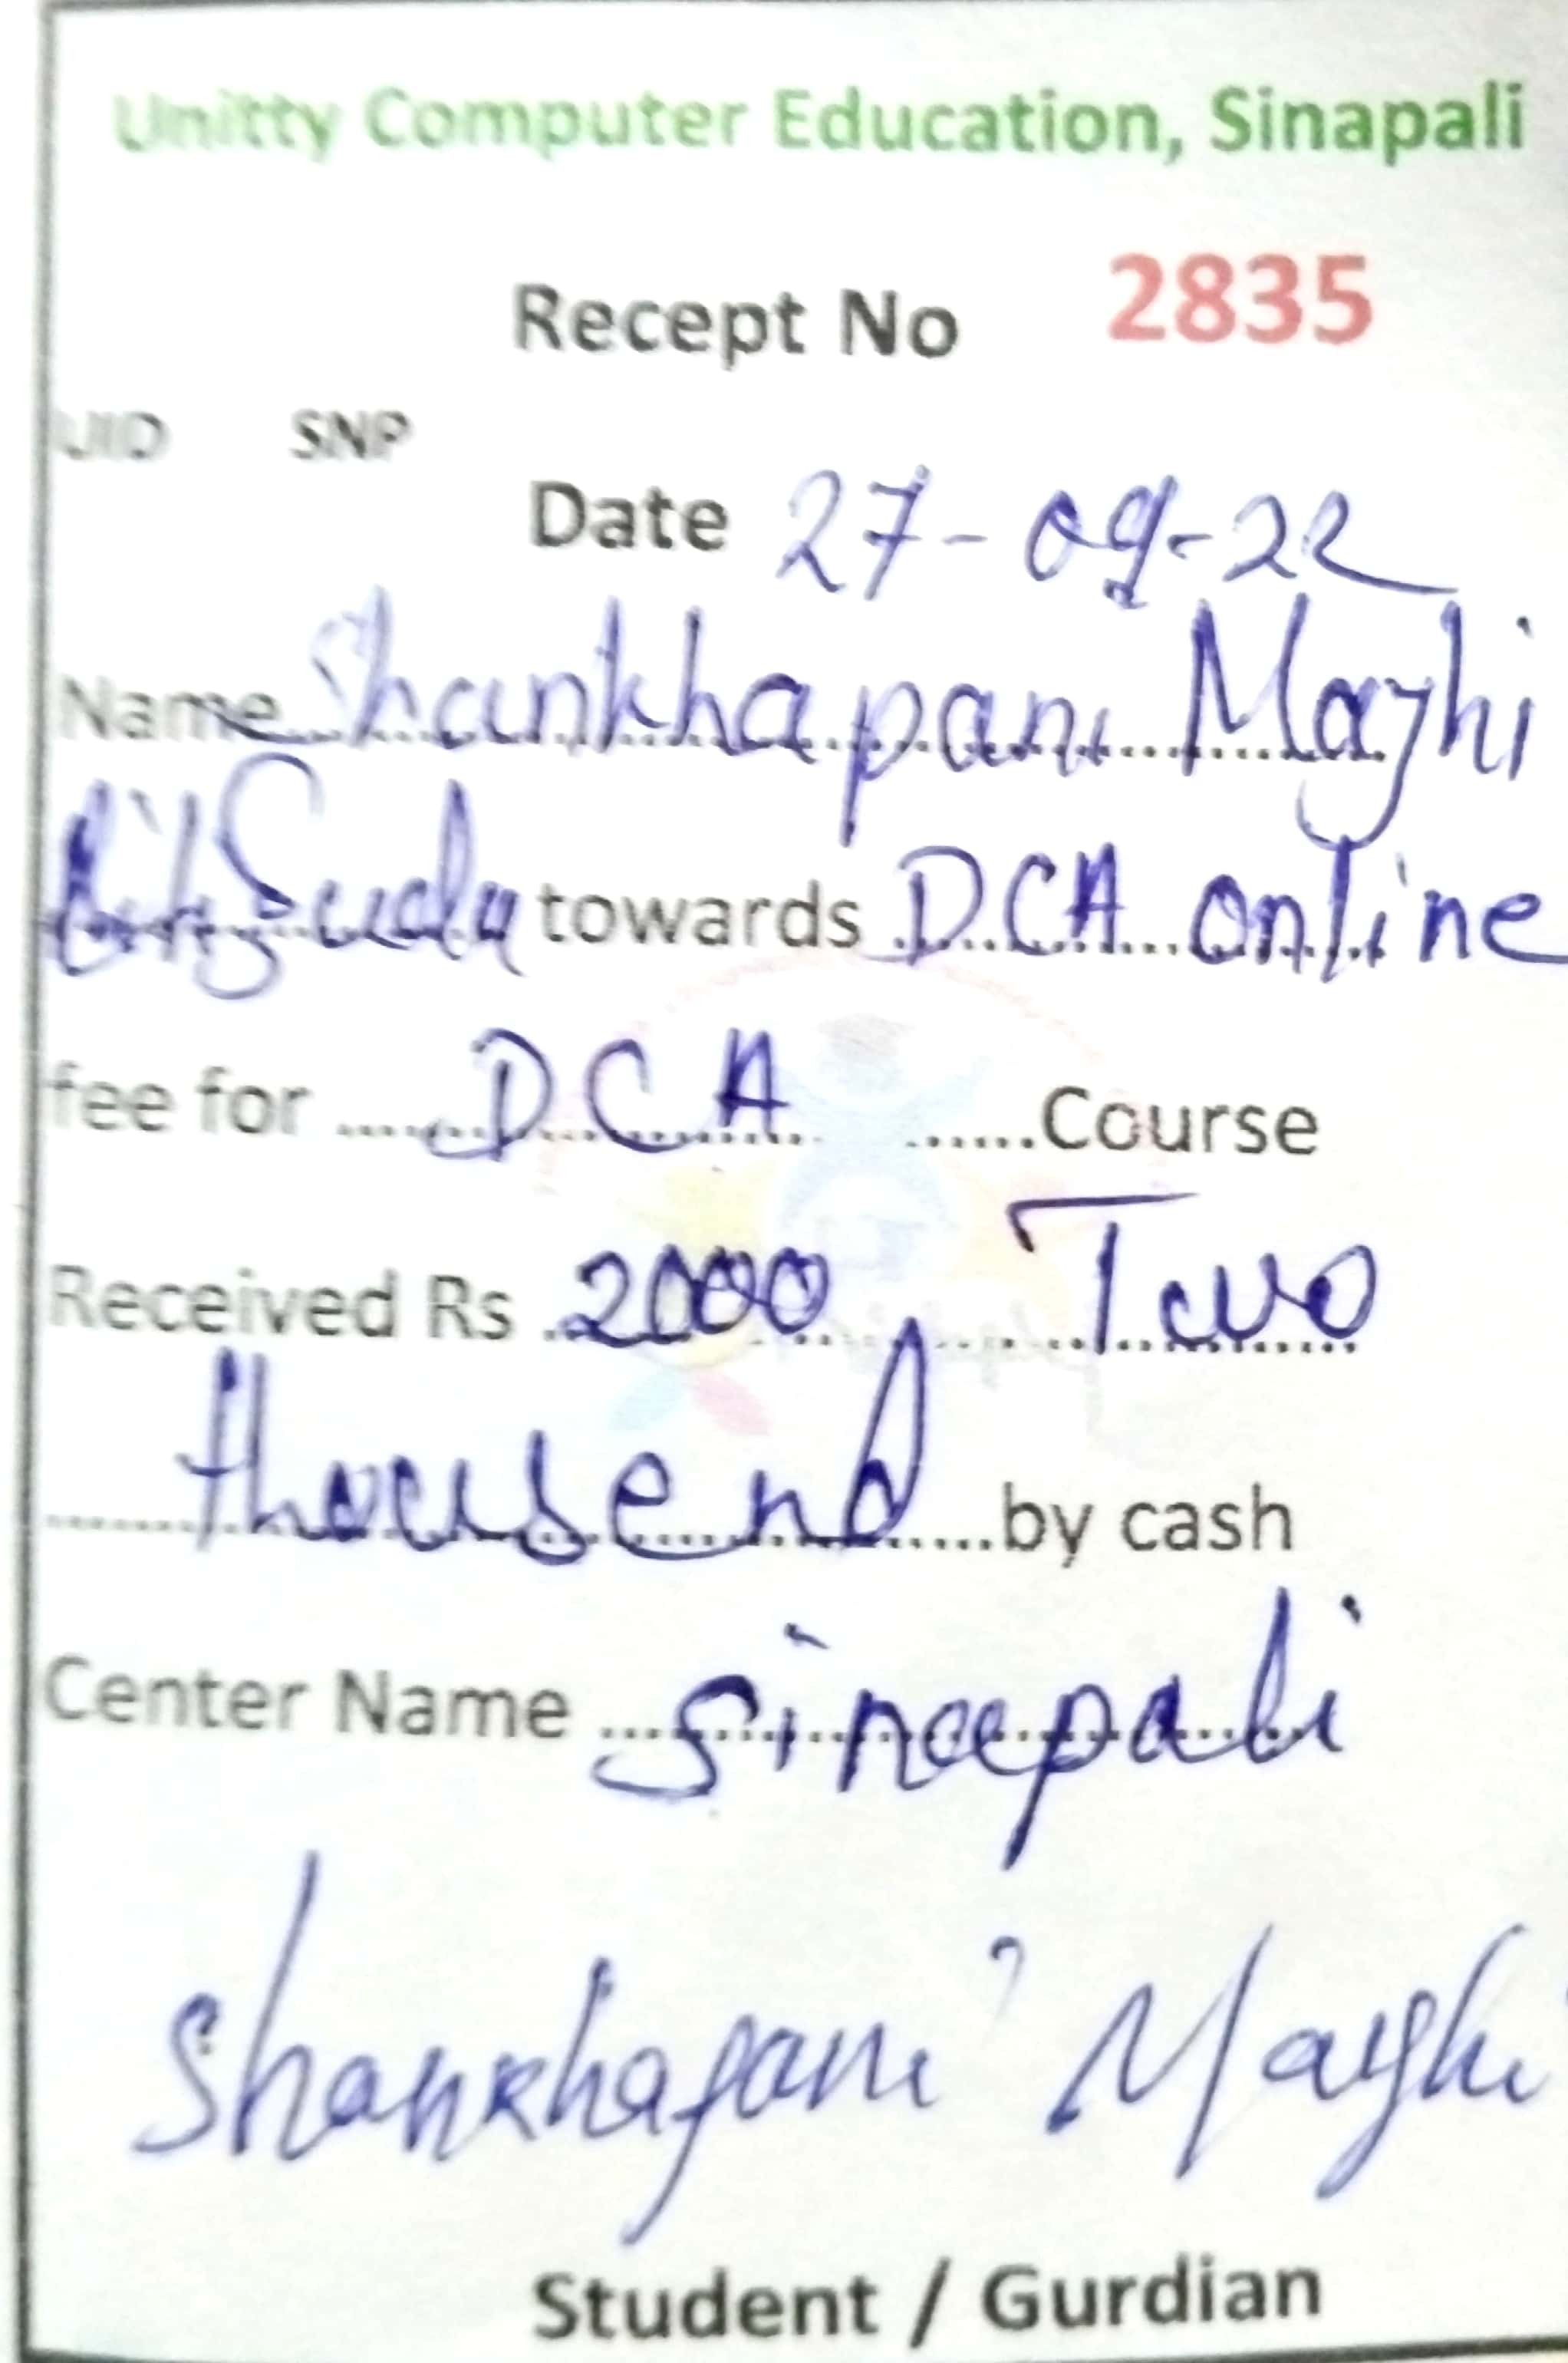 Unitty Computer Education, Sinapali
Recept No 2835
UID SNP
Date 27-09-22
Name Shankhapani Majhi
towards DCA online
fee for DCA Course
Received Rs 2000 Two
thousend by cash
Center Name Sinapali
Shankhapani Majhi
Student / Gurdian